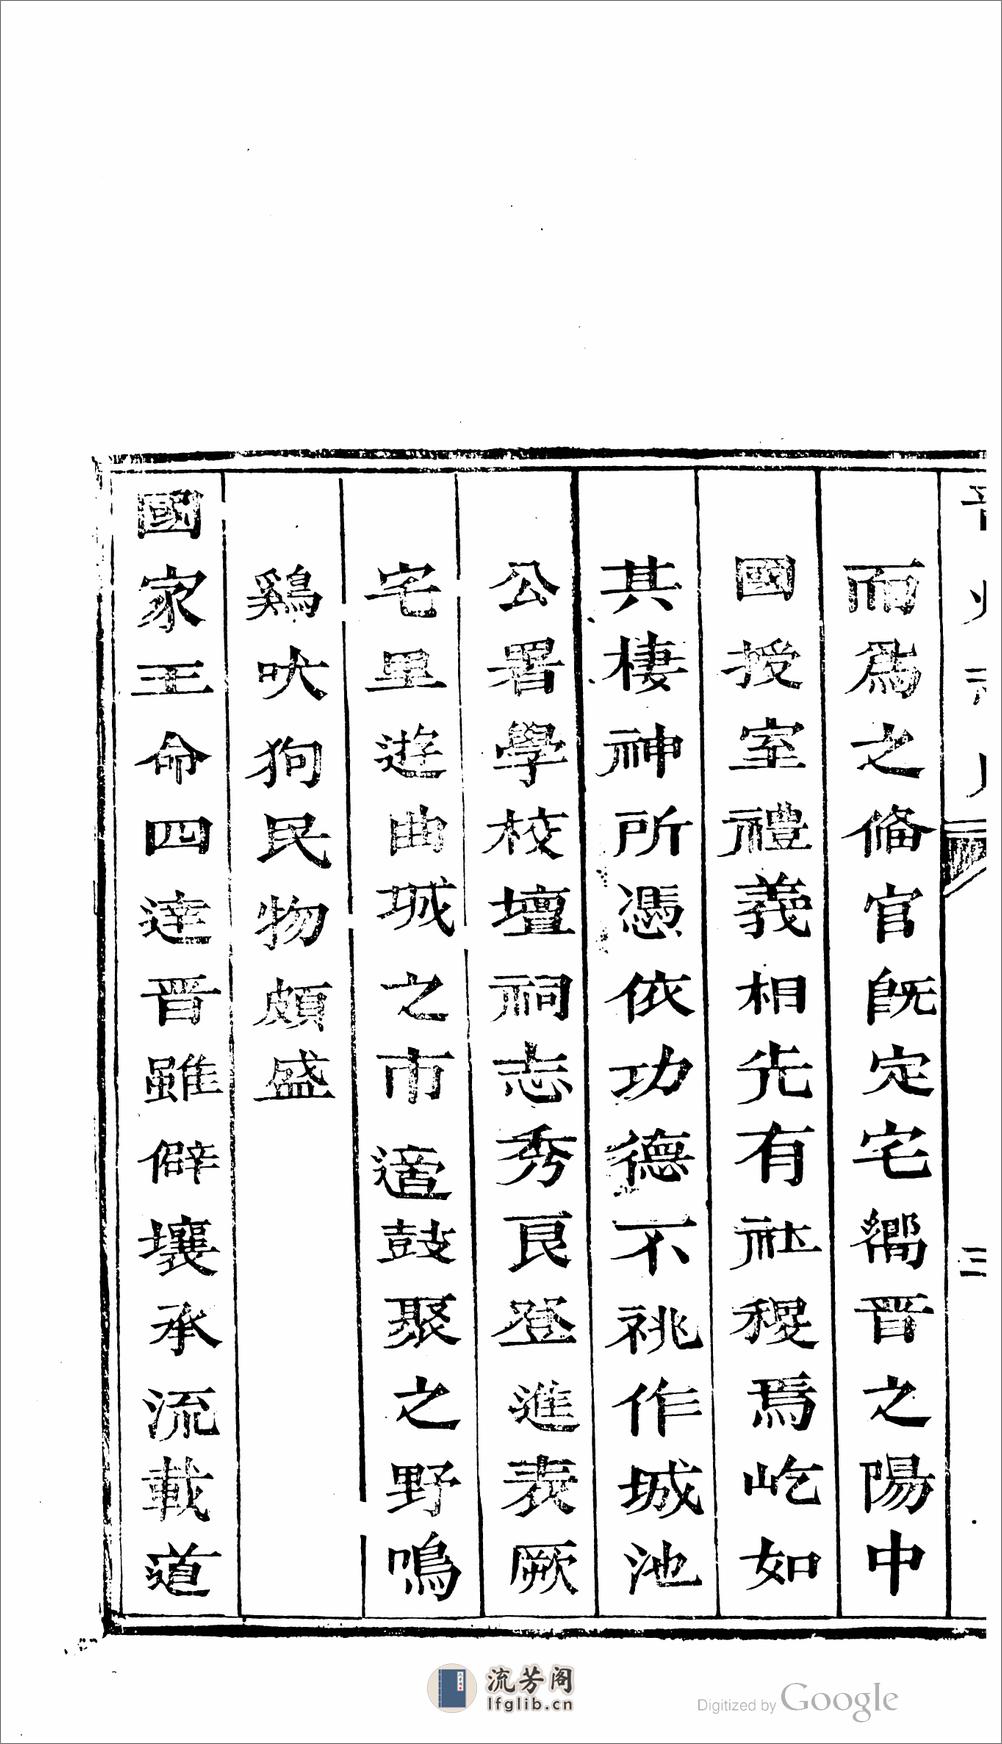 而爲之備官既定宅嚮晋之陽中
國授室禮義相先有社稷焉屹如
其棲神所憑依功德不祧作城池
公署學校壇祠志秀民登進表厥
宅里遊曲城之市適鼓聚之野鳴
鷄吠狗民物頗盛
國家王命四達晋雖僻壤承流載道
三
流芳阁
lfglib.cn
Digitized by Google